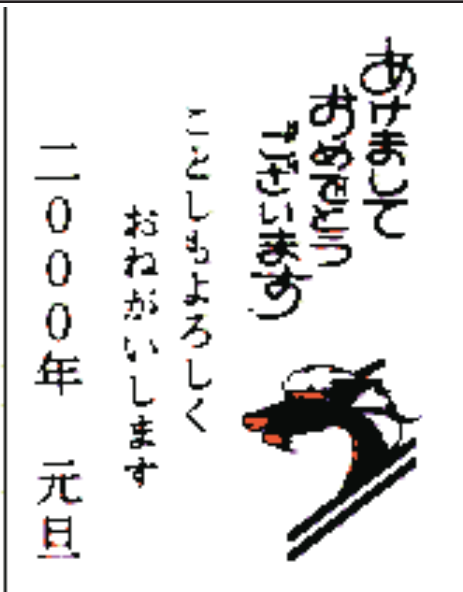 あけまして
おめでとう
ございます
ことしもよろしく
おねがいします
二000年 元旦